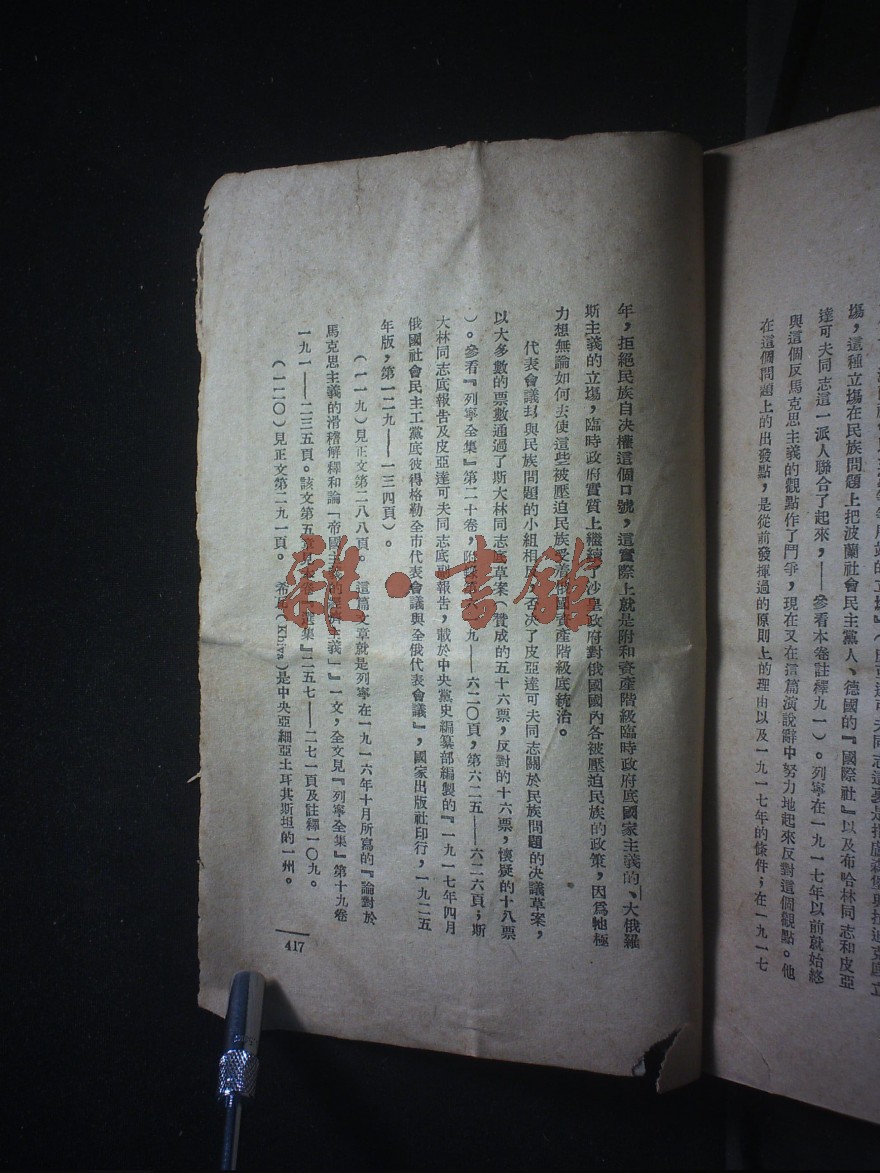 場，這種立場在民族問題上把波蘭社會民主黨人、德國的『國際社』以及布哈林同志和皮亞
達可夫同志這一派人聯合了起來，——參看本卷註釋九一）。列寧在一九一七年以前就始終
與這個反馬克思主義的觀點作了鬥爭，現在又在這篇演說辭中努力地起來反對這個觀點。他
在這個問題上的出發點，是從前發揮過的原則上的理由以及一九一七年的條件；在一九一七
年，拒絕民族自決權這個口號，這實際上就是附和資產階級臨時政府底國家主義的、大俄羅
斯主義的立場，臨時政府實質上繼續了沙皇政府對俄國國內各被壓迫民族的政策，因為牠極
力想無論如何去使這些被壓迫民族受着俄國資產階級底統治。
代表會議 與民族問題的小組相 否決了皮亞達可夫同志關於民族問題的決議草案，
以大多數的票數通過了斯大林同志底草案（贊成的五十六票，反對的十六票，懷疑的十八票
）。參看『列寧全集』第二十卷，附錄第六 九——六二〇頁，第六二五——六二六頁；斯
大林同志底報告及皮亞達可夫同志底副報告，載於中央黨史編纂部編製的『一九一七年四月
俄國社會民主工黨底彼得格勒全市代表會議與全俄代表會議』，國家出版社印行，一九二五
年版，第一二九——一三四頁）。
（一一九）見正文第二八八頁。 這篇文章就是列寧在一九一六年十月所寫的『論對於
馬克思主義的滑稽解釋和論「帝國主義的經濟主義」』一文，全文見『列寧全集』第十九卷
一九一——二三五頁。該文第五章見 選集』二五七——二七一頁及註釋一〇九。
（一二〇）見正文第二九一頁。 希 （Khiva）是中央亞細亞土耳其斯坦的一州。
417
雜·書館